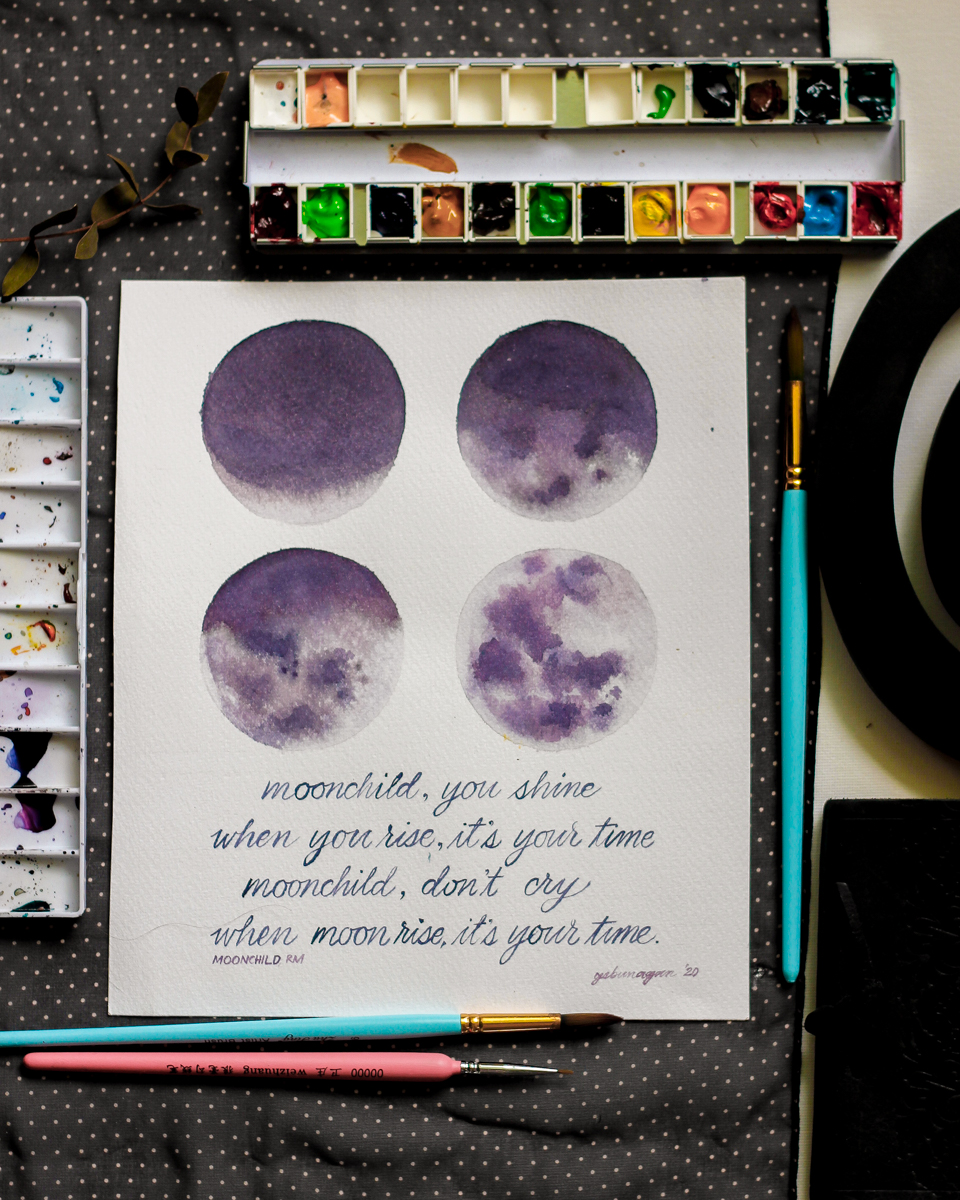 moonchild, you shine
when you rise, it's your time
moonchild, don't cry
when moon rise, it's your time.
MOONCHILD RM
'20
Weizhuang 00000